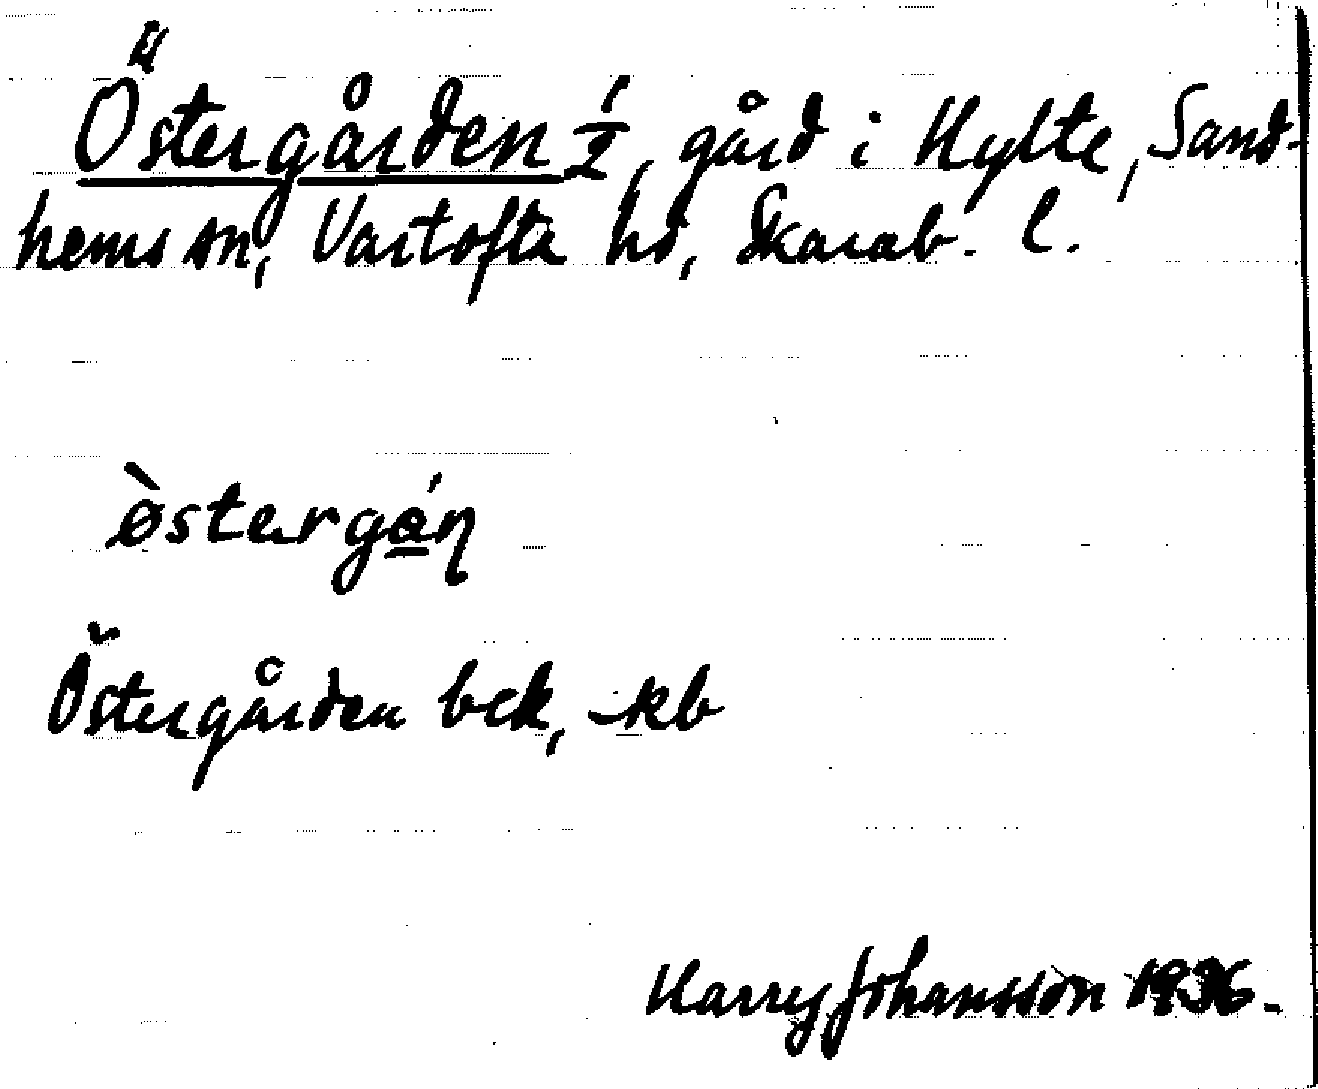 Östergården 1/2, gård i Hylte, Sand-
hems sn, Vartofta hd, Skarab. l.
òstergán
Östergården bck, -kb
Harry Johansson 1936.